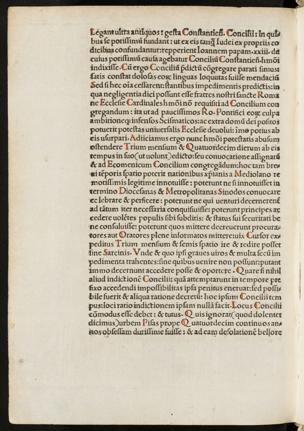 Legant ultra antiquos: & gesta Constantien. Concilii: in qui
bus se potissimū fundant: ut ex eis tanq̄ Iudei ex propriis co
dicibus confundantur: repperient Ioannem papam .xxiii. de
cuius potissimū causa agebatur Concilii Constantien. hmoi
indixisse. Cū ergo Concilii sedictū cōgregare parati sint:ut
satis constat dolosas eos; linguas loquutas fuisse mendaciū
Sed si hec oia cessarent: stantibus impedimentis predictis: in
qua negligentia dici possent esse fratres nostri sancte Roma
ne Ecclesie Cardinales hmōi nō requisiti ad Concilium con
gregandum: ita ut ad paucissimos Ro. Pontifici eos; culpa
poruerit potestas universalis Ecclesie devolui: imo potius ab
eis usurpari. Adiiciamus ergo nunc hmōi potestatis abusum
ostendere Trium mensium & Quatuordecim dierum ab eis
tempus in suo
& ad Ecomenicum Concilium congregādum: hoc tam bre
vi tēporis spatio poterit nationibus
motissimis legitime innotuisse: poterunt ne si innotuisset in
termino Diocesanas & Metropolitanas Sinodos convocare
et librare & perficere: poterunt ne qui venturi decernerent
ad tātum iter necessaria conquisivisse: poterunt principes ac
cedere volētes populis sibi subditis: & status sui securitati be
ne consuluisse: poterunt quos mittere decreverunt procura
tores aut Oratores plene informatos misisse: Cursor ex
peditus Trium mensium & semis spatio ire & redire posset
sine Sarcinis. Unde & quo ipsā graves viros & multa secū im
pedimenta trahentes: sine quibus venire non possunt: putant
immo decernunt accedere posse & oportere. Quare si nihil
aliud indictionē Concilii quā attemptarunt in tempore pre
fixo accedendi impossibilitas ipsa penitus enervat: sed possi
bile fuerit & aliqua ratione decrete hoc ipsum Concilii tem
pus: loci ratio indictionem ipsam nullā facit. Locus Concilii
cōmodus esse debet: & tutus. Quis ignorat (quod dolenter
dicimus) urbem Pisas prope Quatuordecim continuos an
nos obsessam durissime fuisse: & ad eam desolationē bellore